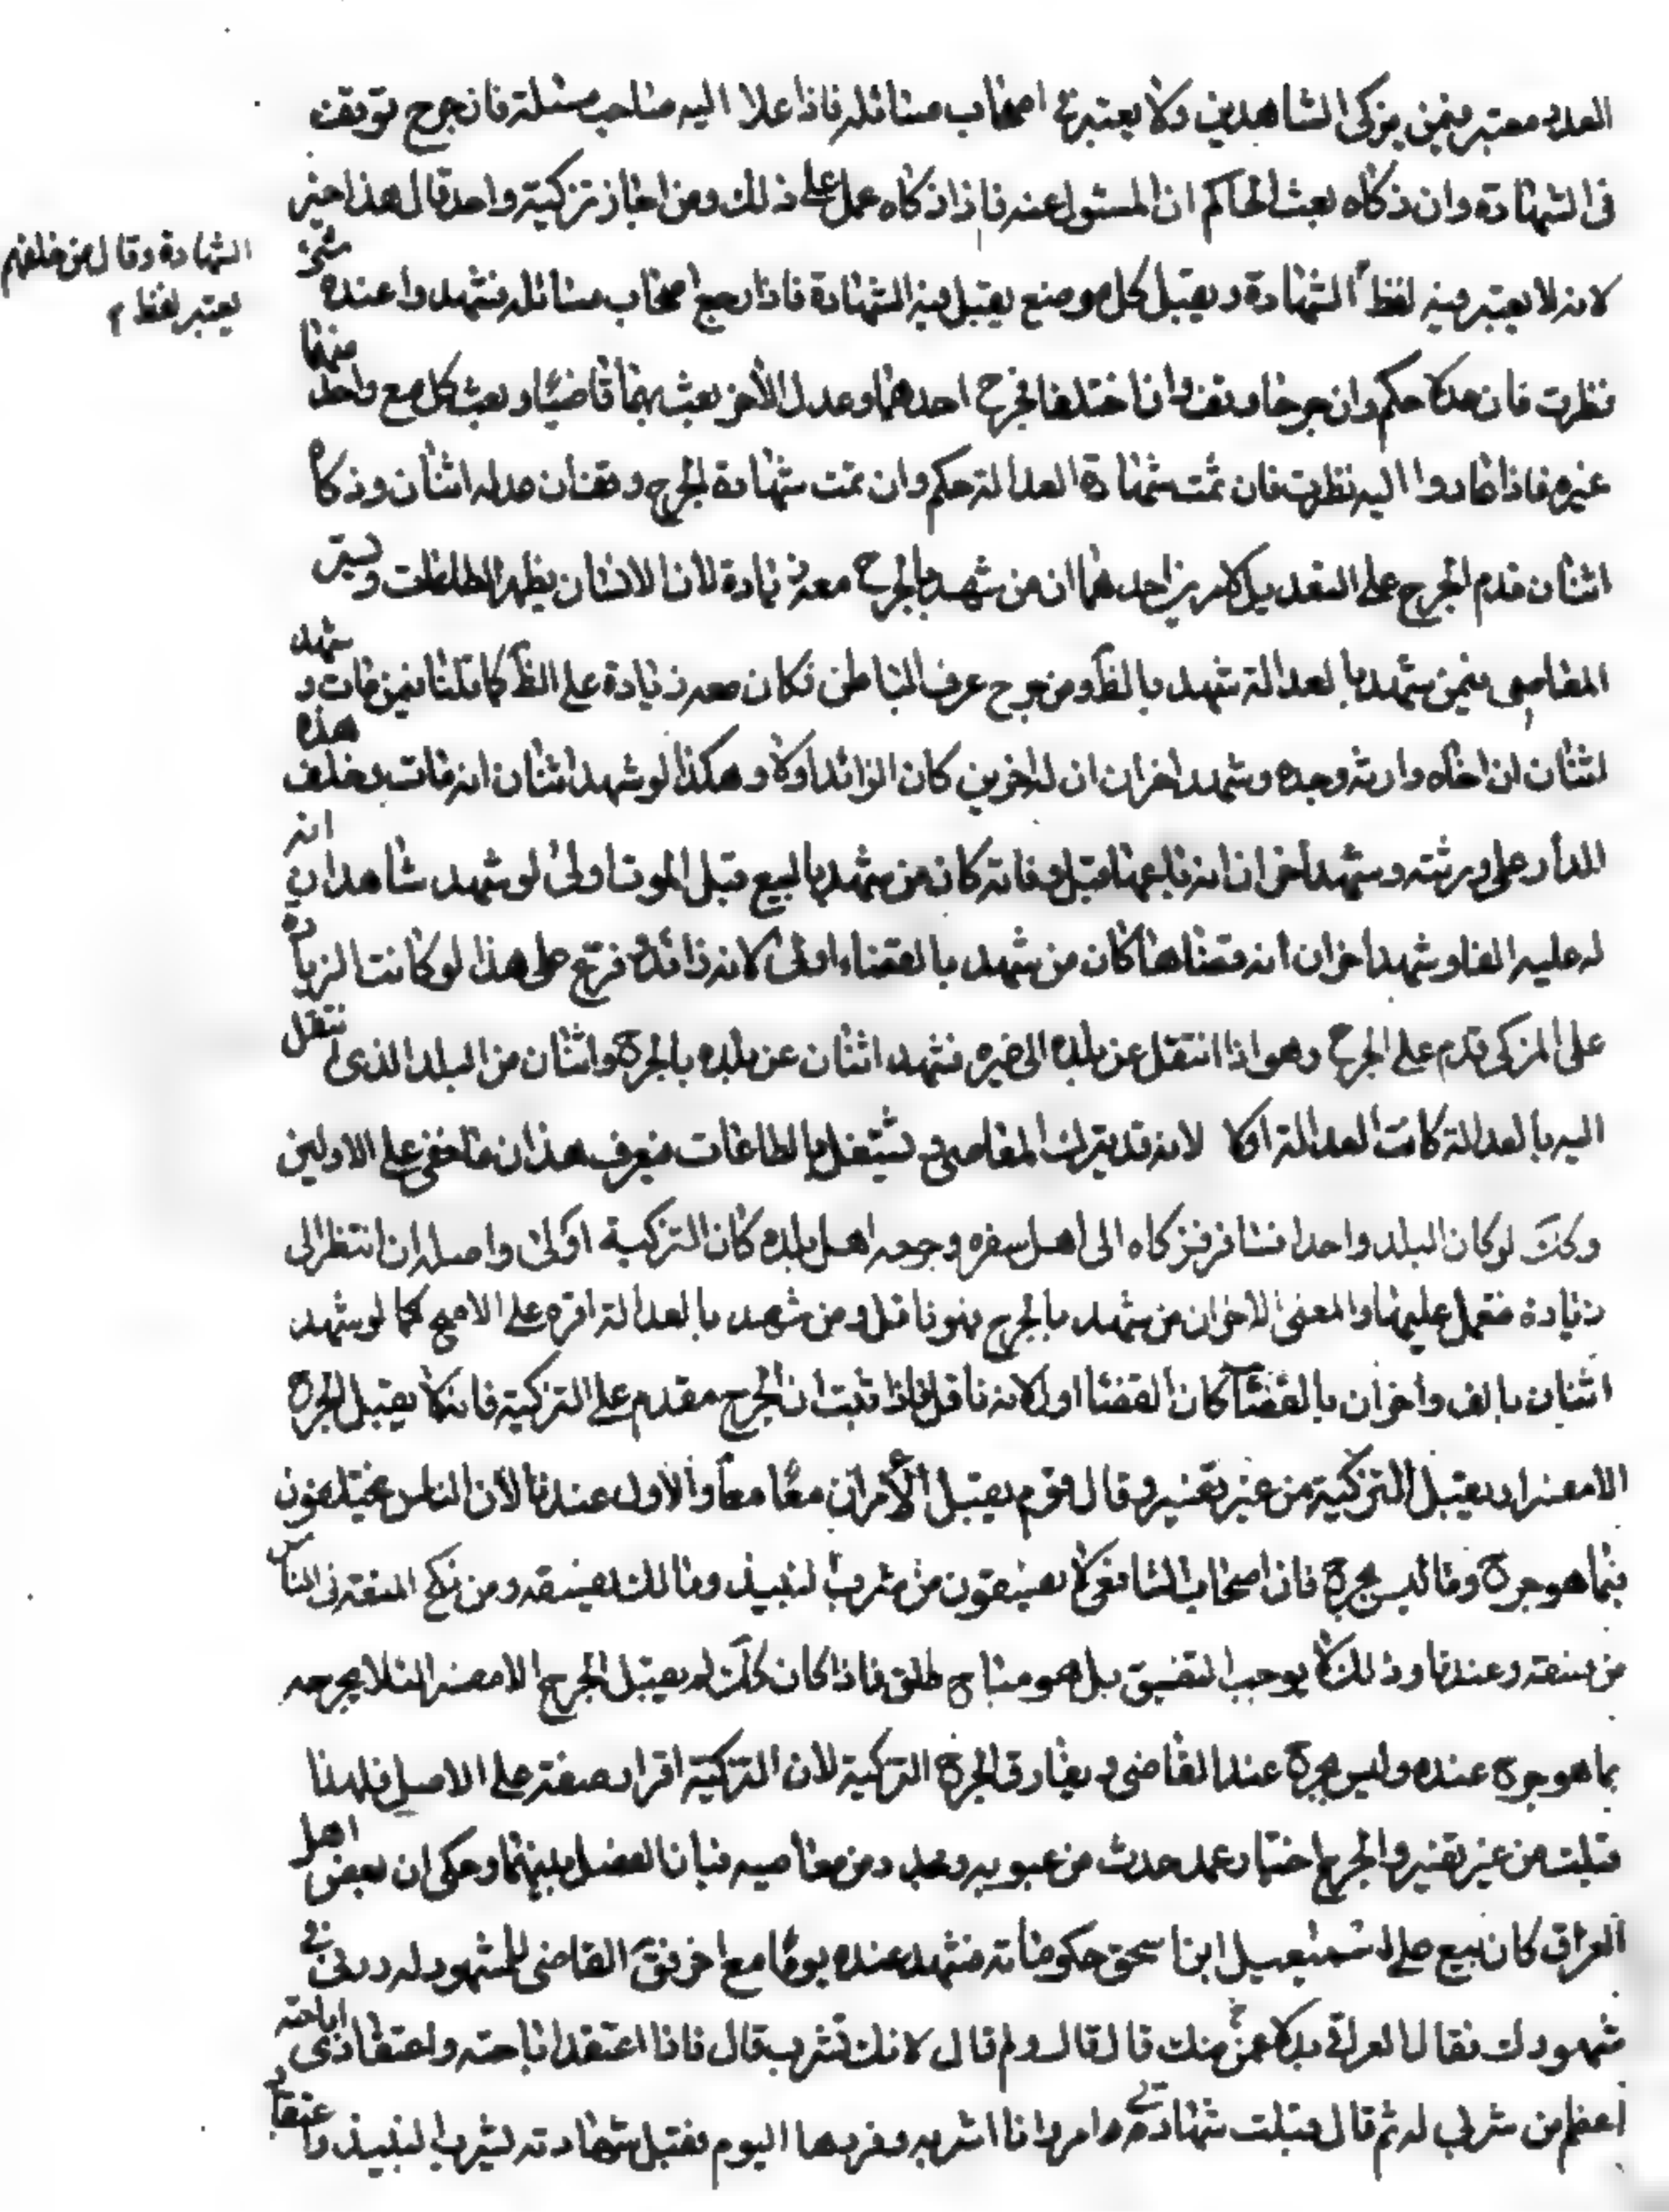 العدد معتبر فيمن يزكى الشاهدين ولا يعتبر في اصحاب مسائله فاذا عاد اليه صاحب مسئلة فان جرح توقف
فى الشهادة وان زكاه بعث الحاكم الى المسئول عنه فاذا زكاه عمل على ذلك ومن اجاز تزكية واحد قال هذا خبر
لانه لا يعتبر فيه لفظ الشهادة ويقبل كل موضع يقبل فيه الشهادة فاذا رجع اصحاب مسائله فشهدوا عنده بشئ
الشهادة وقال من خلفهم
يعتبر لفظ
نظرت فان عدلا حكم وان جرحا وقف وان اختلفا فجرح احدهما وعدل الأخر بعث بهما ثانيا وبعث كل مع واحد منهما
غيره فاذا عادوا اليه نظرت فان تمت شهادة العدالة حكم وان تمت شهادة الجرح وقف فان عدله اثنان وزكاه
اثنان قدم الجرح على التعديل لامرين احدهما ان من شهد بالجرح معه زيادة لان الانسان يظهر الطاعات ويستر
المعاصى فمن شهد بالعدالة شهد بالظ ومن جرح عرف الباطن فكان معه زيادة على الظ كما قلنا فيمن مات وشهد
اثنان ان اخاه وارثه وحده وشهد اخران ان له اخوين كان الزائد اولا وهكذا لو شهد اثنان انه مات وخلف هذه
الدار على ورثته وشهد اخران انه باعها قبل وفاته كان من شهد بالبيع قبل الموت اولى لو شهد شاهدان انه
له عليه الفا وشهد اخران انه قضاها كان من شهد بالقضاء اولى لانه زائد فرتج على هذا لو كانت الزيادة
على المزكى قدم على الجرح وهو اذا انتقل عن بلده الى غيره فشهد اثنان عن بلده بالجرح واثنان من البلد الذى انتقل
اليه بالعدالة كانت العدالة اولا لانه قد يترك المعاصى ويشتغل بالطاعات فيعرف هذان ما خفى على الاولين
وكك لو كان البلد واحدا فسافر فزكاه الى اهل سفره وجرحه اهل بلده كان التزكية اولى واصله ان انتظر الى
زيادة فتعمل عليها والمعنى الاخر ان من شهد بالجرح فهو ناقل ومن شهد بالعدالة اقره على الاصح كما لو شهد
اثنان بالف واخران بالقضاء كان القضا اولا لانه ناقل فاذا ثبت ان الجرح مقدم على التزكية فانه لا يقبل الجرح
الا مفسرا ويقبل التزكية من غير تفسير وقال قوم يقبل الأمران معًا معًا والاول عندنا لان الناس يختلفون
فيما هو جرح وما ليس بجرح فان اصحاب الشافعى لا يفسقون من شرب النبيذ ومالك يفسقه ومن نكح المتعه فى الناس
من يفسقه وعندنا وذلك لا يوجب التفسيق بل هو مباح طلق فاذا كان كك لم يقبل الجرح الا مفسرا لئلا يجرحه
بما هو جرح عنده وليس بجرح عند القاضى ويفارق الجرح التزكية لان التزكية اقرار صفة على الاصل فلهذا
قبلت من غير تفسير والجرح اختيار عمد حدث من عيوبه وتجدد من معاصيه فبان الفصل بينهما وحكى ان بعض اهل
العراق كان يبيع على اسمعيل ابن اسحق حكوماته فشهد عنده يومًا مع اخر فق القاضى للمشهود له زدنى فى
شهودك فقال العراقى بدلا عن منك قال قال ولم قال لانك تشرب قال فاذا اعتقد اباحته واعتقادى اباحته
اعظم من شربى له ثم قال قبلت شهادتى امر وانا اشربه وتردها اليوم فقبل شهادته لشرب النبيذ واعتقا